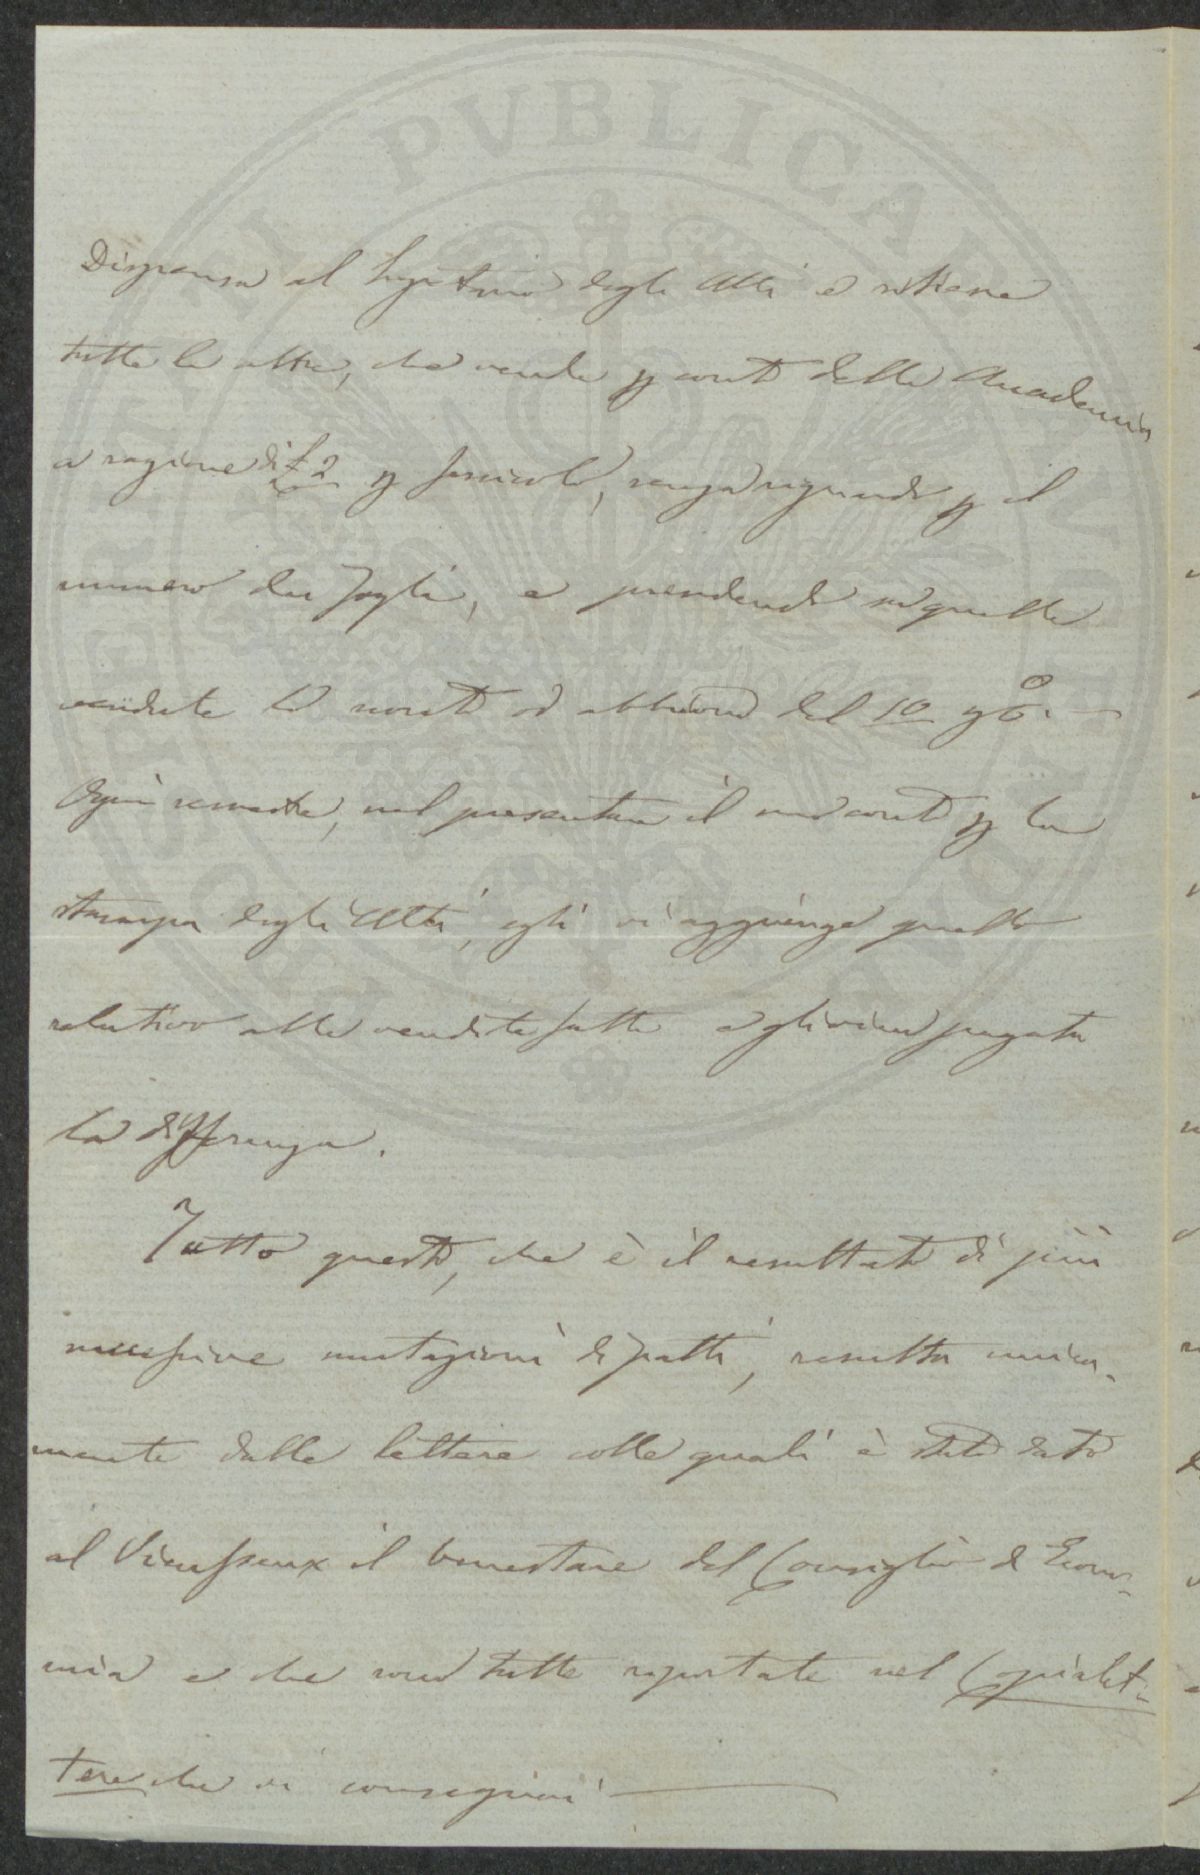 PERUSINI PUBLICAE UTILITATI
Dispensa al Segretario degli Atti e ritiene
tutte le altre, che vende p conto della Accademia
a ragione di £ 2 p fascicolo, senza riguardo p il
numero dei fogli, e prendendo su quelle
vendute lo sconto od abbuono del 10 p%. —
Ogni semestre, nel presentare il suo conto p la
stampa degli Atti, egli vi aggiunge quello
relativo alle vendite fatte e gli vien pagata
la differenza.
Tutto questo, che è il resultato di più
successive mutazioni di patti, resulta unica-
mente dalle lettere colle quali è stato dato
al Vieusseux il benestare del Consiglio di Econo-
mia e che sono tutte riportate nel Copialet-
tere che vi consegnai —